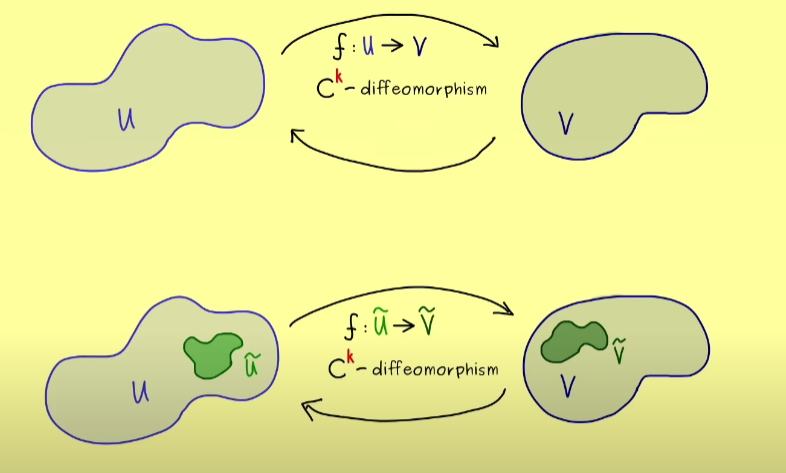 f : U → V
Cᵏ- diffeomorphism
U
V
f : Ũ → Ṽ
Cᵏ- diffeomorphism
Ũ
Ṽ
U
V